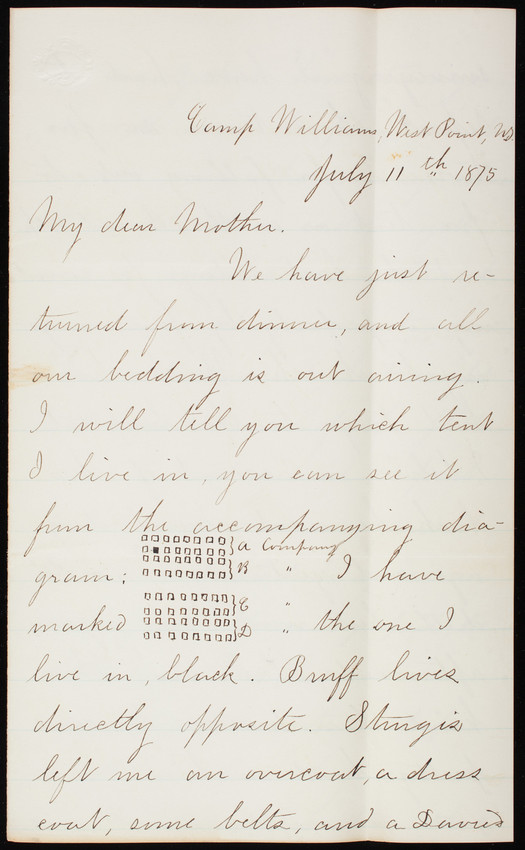 Camp Williams, West Point, N.Y.
July 11th 1875
My dear Mother.
We have just re-
turned from dinner, and all
our bedding is out airing.
I will tell you which tent
I live in, you can see it
from the accompanying dia-
gram:
A Company
B "
C "
D "
I have
marked
the one I
live in, black. Bruff lives
directly opposite. Sturgis
left me an overcoat, a dress
coat, some belts, and a Davies